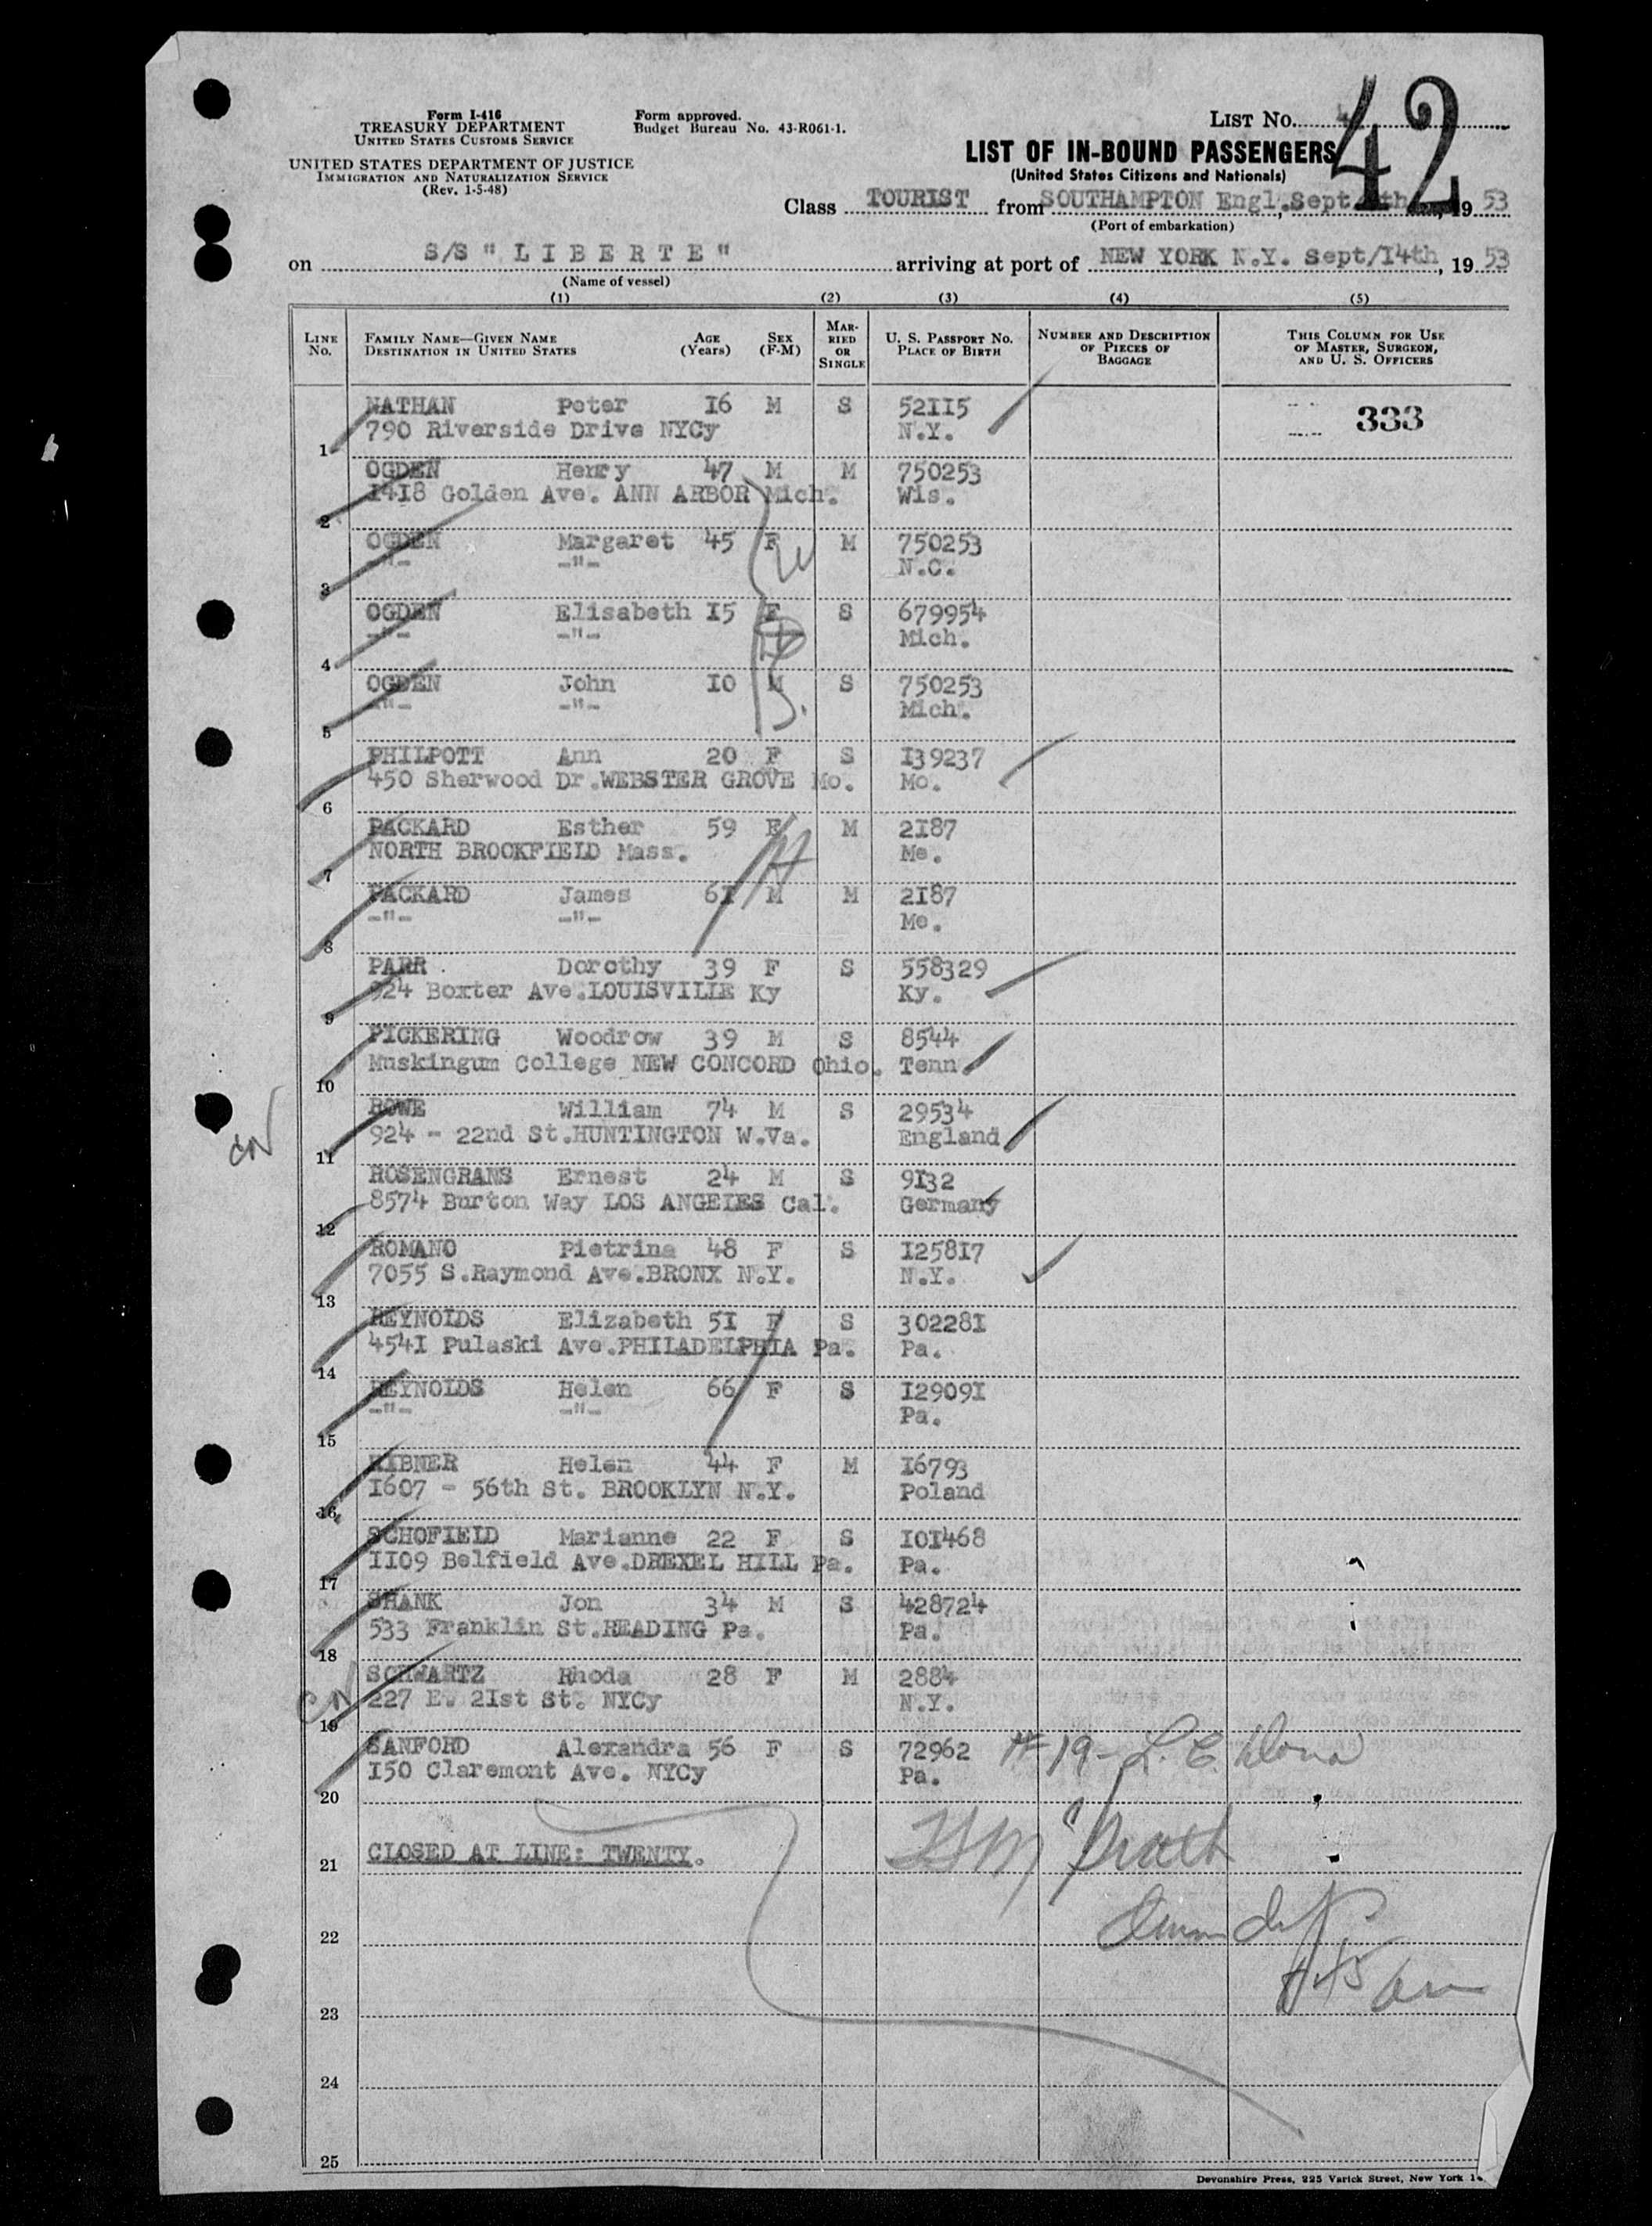 Form I-416
TREASURY DEPARTMENT
UNITED STATES CUSTOMS SERVICE
UNITED STATES DEPARTMENT OF JUSTICE
IMMIGRATION AND NATURALIZATION SERVICE
(Rev. 1-5-48)
Form approved.
Budget Bureau No. 43-R061-1.
LIST NO.
42
LIST OF IN-BOUND PASSENGERS
(United States Citizens and Nationals)
Class TOURIST from SOUTHAMPTON Engl., Sept. 19 53
(Port of embarkation)
on S/S " L I B E R T E " arriving at port of NEW YORK N.Y. Sept/14th, 19 53
(Name of vessel)
(1) (2) (3) (4) (5)
LINE NO. FAMILY NAME—GIVEN NAME DESTINATION IN UNITED STATES AGE (Years) SEX (F-M) MARRIED OR SINGLE U. S. PASSPORT NO. PLACE OF BIRTH NUMBER AND DESCRIPTION OF PIECES OF BAGGAGE THIS COLUMN FOR USE OF MASTER, SURGEON, AND U. S. OFFICERS
NATHAN Peter 16 M S 52115 333
1 790 Riverside Drive NYCy N.Y.
OGDEN Henry 47 M M 750253
2 1418 Golden Ave. ANN ARBOR Mich. Wis.
OGDEN Margaret 45 F M 750253
3 -"- -"- N.C.
OGDEN Elisabeth 15 F S 679954
4 -"- -"- Mich.
OGDEN John 10 M S 750253
5 -"- -"- Mich.
PHILPOTT Ann 20 F S 139237
6 450 Sherwood Dr.WEBSTER GROVE Mo. Mo.
PACKARD Esther 59 F M 2187
7 NORTH BROOKFIELD Mass. Me.
PACKARD James 61 M M 2187
8 -"- -"- Me.
PARR Dorothy 39 F S 558329
9 924 Boxter Ave.LOUISVILLE Ky Ky.
PICKERING Woodrow 39 M S 8544
10 Muskingum College NEW CONCORD Ohio. Tenn.
ROWE William 74 M S 29534
11 924 - 22nd St.HUNTINGTON W.Va. England
ROSENGRANS Ernest 24 M S 9132
12 8574 Burton Way LOS ANGELES Cal. Germany
ROMANO Pietrina 48 F S 125817
13 7055 S.Raymond Ave.BRONX N.Y. N.Y.
REYNOLDS Elizabeth 51 F S 302281
14 4541 Pulaski Ave.PHILADELPHIA Pa. Pa.
REYNOLDS Helen 66 F S 129091
15 -"- -"- Pa.
RIBNER Helen 44 F M 16793
16 1607 - 56th St. BROOKLYN N.Y. Poland
SCHOFIELD Marianne 22 F S 101468
17 1109 Belfield Ave.DREXEL HILL Pa. Pa.
SHANK Jon 34 M S 428724
18 533 Franklin St.READING Pa. Pa.
SCHWARTZ Rhoda 28 F M 2884
19 227 E. 21st St. NYCy N.Y.
SANFORD Alexandra 56 F S 72962 # 19 - L. E.
20 150 Claremont Ave. NYCy Pa.
21 CLOSED AT LINE: TWENTY.
22
23
24
25
Devonshire Press, 225 Varick Street, New York